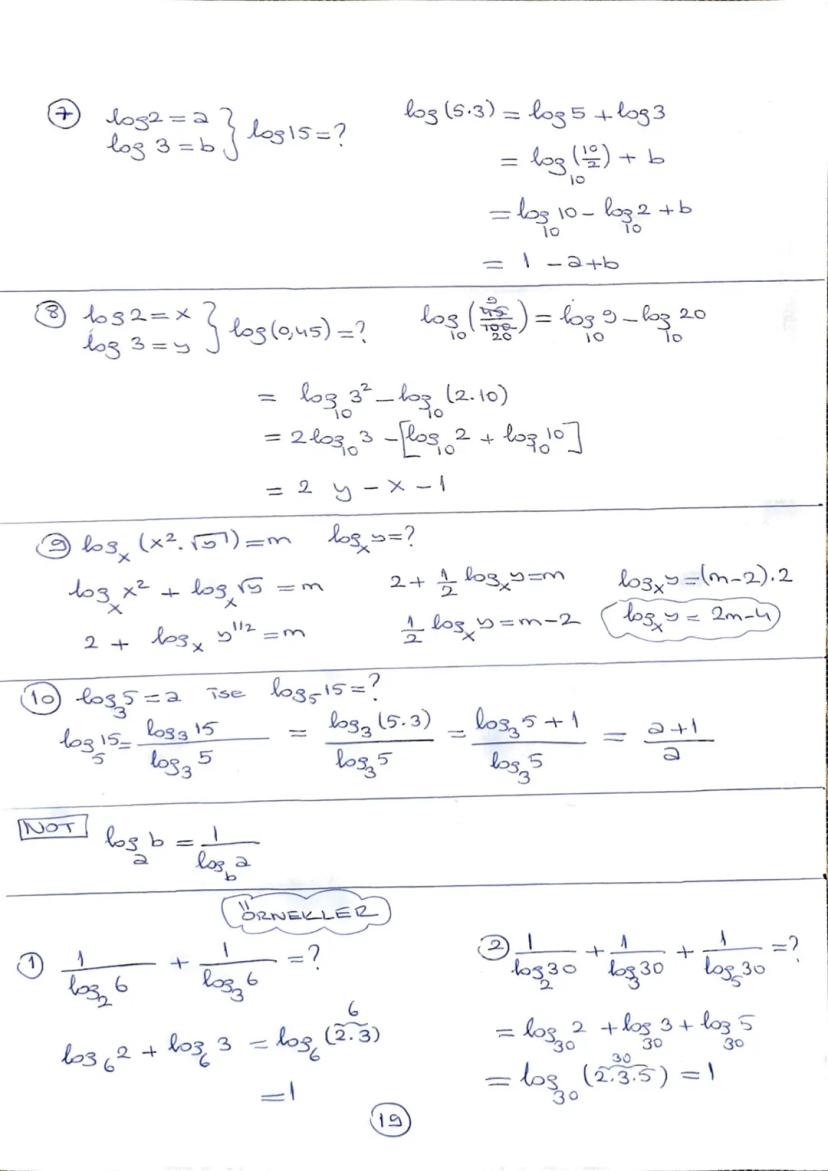 7 log2=a
log 3=b } log15=?
log(5.3) = log5 + log3
= log₁₀(10/2) + b
= log₁₀10 - log₁₀2 + b
= 1 - a + b
8 log2=x
log 3=y } log(0,45)=?
log₁₀(45/100) = log₁₀9 - log₁₀20
9
20
= log₁₀3² - log₁₀(2.10)
= 2log₁₀3 - [log₁₀2 + log₁₀10]
= 2 y - x - 1
9 logₓ(x².√y)=m logₓy=?
logₓx² + logₓ√y = m
2 + logₓ y^1/2 = m
2 + 1/2 logₓy=m
1/2 logₓy = m-2
logₓy=(m-2).2
logₓy = 2m-4
10 log₃5=a ise log₅15=?
log₅15= log₃15/log₃5 = log₃(5.3)/log₃5 = log₃5+1/log₃5 = a+1/a
NOT logₐb = 1/log_b a
ÖRNEKLER
1 1/log₂6 + 1/log₃6 =?
log₆2 + log₆3 = log₆(2.3)
6
=1
2 1/log₂30 + 1/log₃30 + 1/log₅30 =?
= log₃₀2 + log₃₀3 + log₃₀5
= log₃₀(2.3.5) = 1
30
19